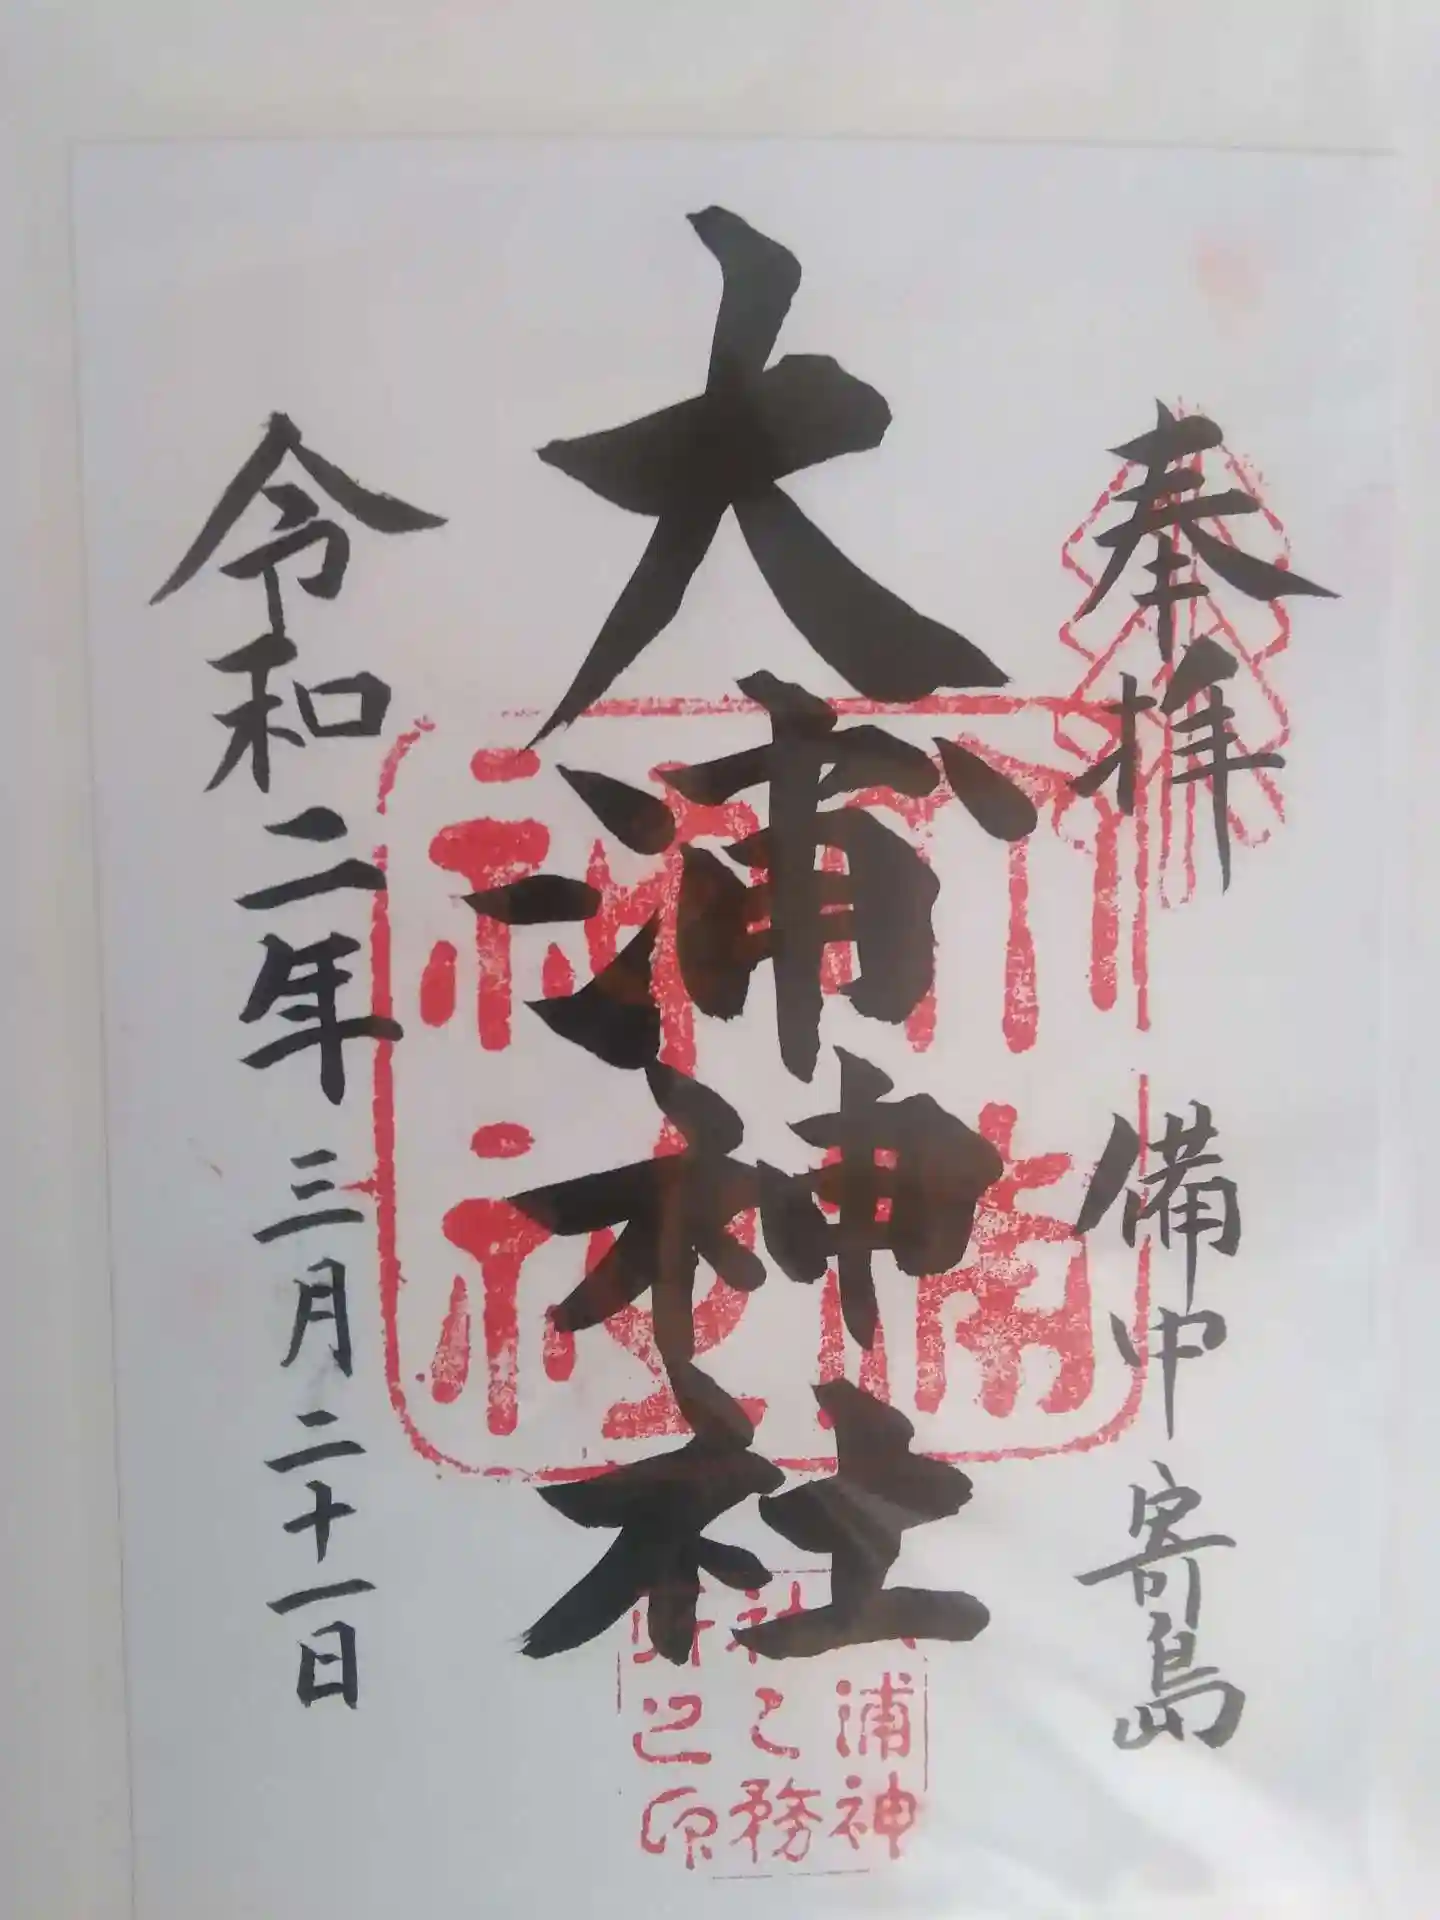 奉拝 備中 寄島
大浦神社
令和二年三月二十一日
大浦神社
大浦神
社之務
所之印